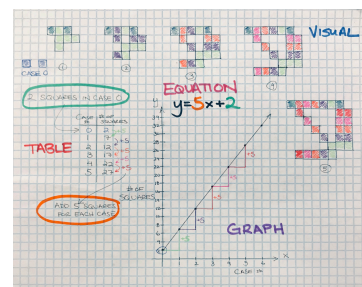 VISUAL
CASE 0
1
2
3
4
5
2 SQUARES IN CASE 0
EQUATION
y=5x+2
TABLE
CASE # # OF SQUARES
0 2
1 7
2 12 +5
3 17 +5
4 22 +5
5 27 +5
ADD 5 SQUARES
FOR EACH CASE
# OF
SQUARES
+5
+5
+5
+5
GRAPH
0 1 2 3 4 5 6
X
CASE #